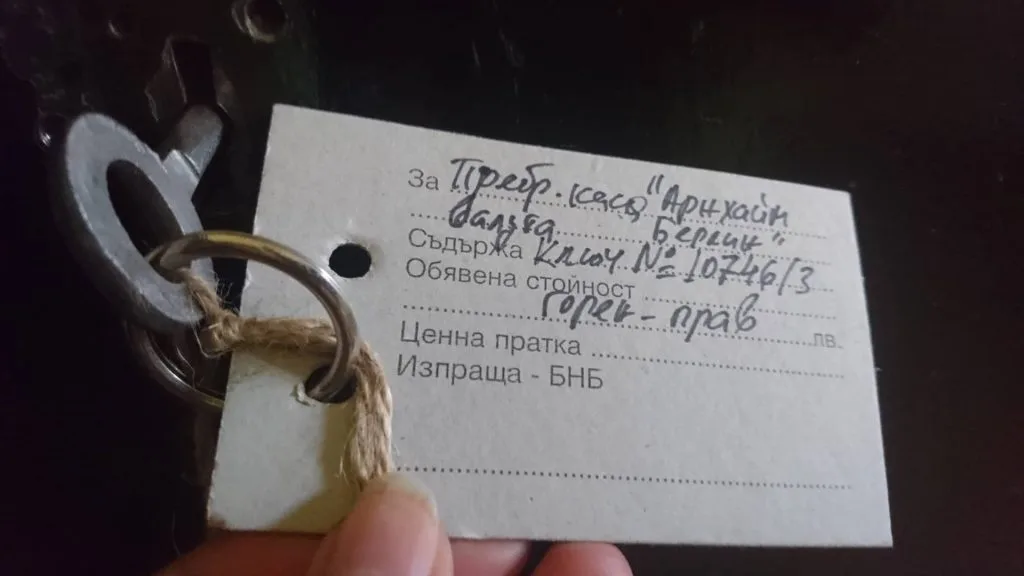 За Пребр. каса "Арнхайм
валута Берлин"
Съдържа Ключ № 10746/3
Обявена стойност
Горен - прав лв.
Ценна пратка
Изпраща - БНБ